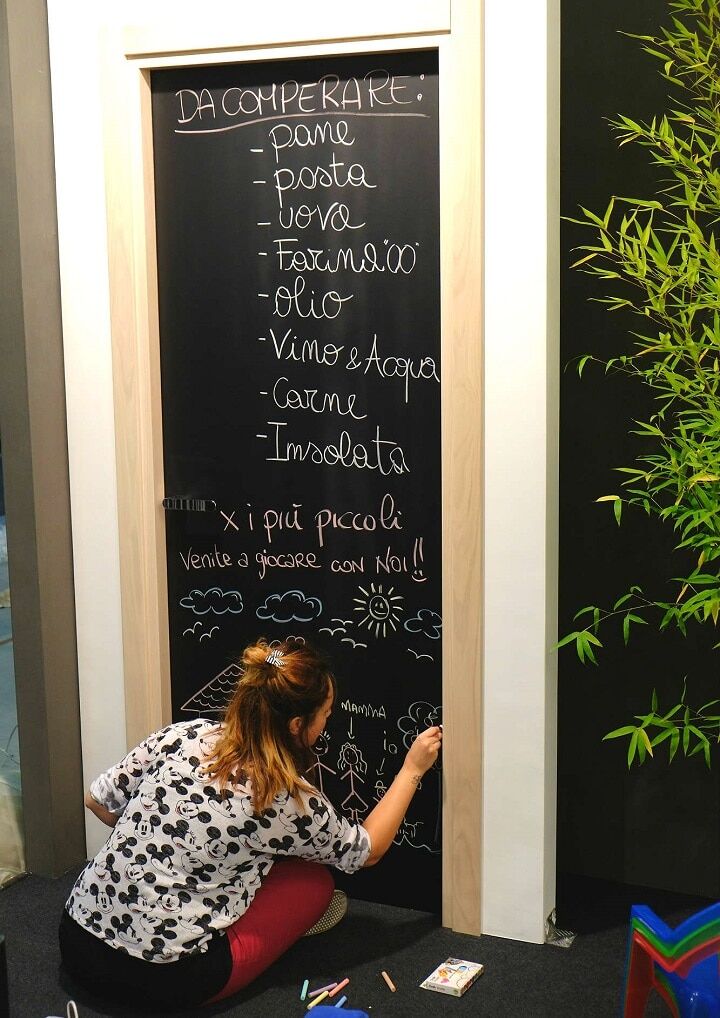 DA COMPERARE:
- pane
- pasta
- uova
- Farina "00"
- olio
- Vino & Acqua
- Carne
- Imsolata
x i più piccoli
Venite a giocare con NOI!!
MAMMA
io